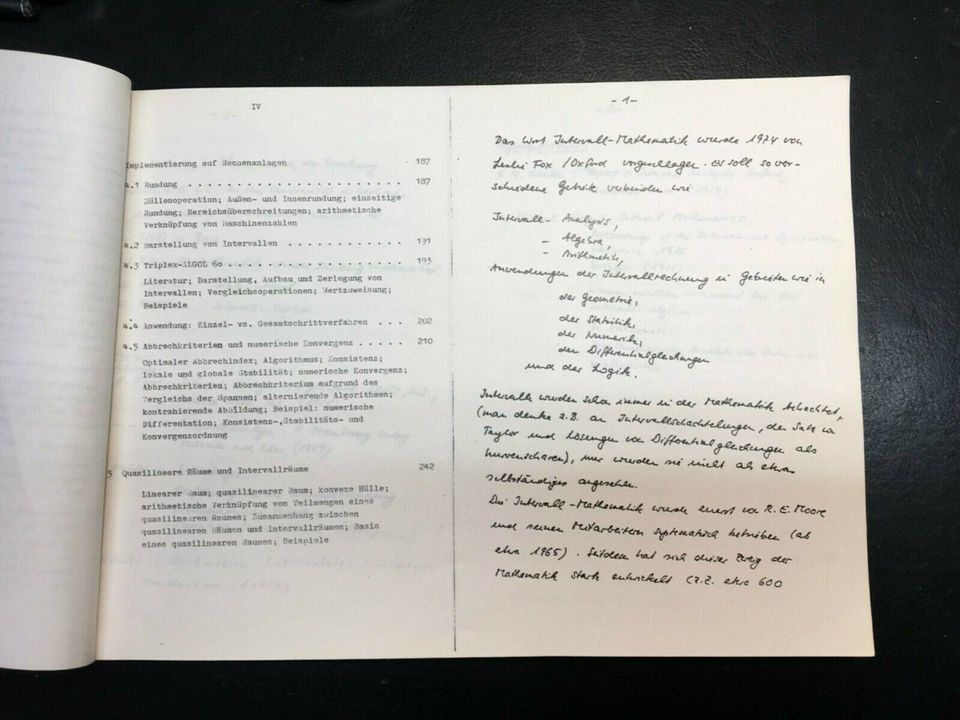 IV
Implementierung auf Rechenanlagen . . . . . . . . . . . . . 187
4.1 Rundung . . . . . . . . . . . . . . . . . . . . . . . . 187
Hüllenoperation; Außen- und Innenrundung; einseitige
Rundung; Bereichsüberschreitungen; arithmetische
Verknüpfung von Maschinenzahlen
4.2 Darstellung von Intervallen . . . . . . . . . . . . 191
4.3 Triplex-ALGOL 60 . . . . . . . . . . . . . . . . . . . 193
Literatur; Darstellung, Aufbau und Zerlegung von
Intervallen; Vergleichsoperationen; Wertzuweisung;
Beispiele
4.4 Anwendung: Einzel- vs. Gesamtschrittverfahren . . . 202
4.5 Abbrechkriterien und numerische Konvergenz . . . . . 210
Optimaler Abbrechindex; Algorithmus; Konsistenz;
lokale und globale Stabilität; numerische Konvergenz;
Abbrechkriterien; Abbrechkriterium aufgrund des
Vergleichs der Spannen; alternierende Algorithmen;
kontrahierende Abbildung; Beispiel: numerische
Differentation; Konsistenz-,Stabilitäts- und
Konvergenzordnung
5 Quasilineare Räume und Intervallräume 242
Linearer Raum; quasilinearer Raum; konvexe Hülle;
arithmetische Verknüpfung von Teilmengen eines
quasilinearen Raumes; Zusammenhang zwischen
quasilinearen Räumen und Intervallräumen; Basis
eines quasilinearen Raumes; Beispiele
- 1 -
Das Wort Intervall-Mathematik wurde 1974 von
Leslie Fox /Oxford vorgeschlagen. Es soll so ver-
schiedene Gebiete verbinden wie
Intervall- Analysis,
- Algebra,
- Arithmetik,
Anwendungen der Intervallrechnung in Gebieten wie in
der Geometrie,
der Statistik,
der Numerik,
den Differentialgleichungen
und der Logik.
Intervalle wurden schon immer in der Mathematik betrachtet,
(man denke z.B. an Intervallschachtelungen, den Satz von
Taylor und Lösungen von Differentialgleichungen als
Kurvenscharen), nur wurden sie nicht als etwas
selbständiges angesehen.
Die Intervall-Mathematik wurde zuerst von R. E. Moore
und seinen Mitarbeitern systematisch betrieben (ab
etwa 1965). Seitdem hat sich dieser Zweig der
Mathematik stark entwickelt (z.Z. etwa 600